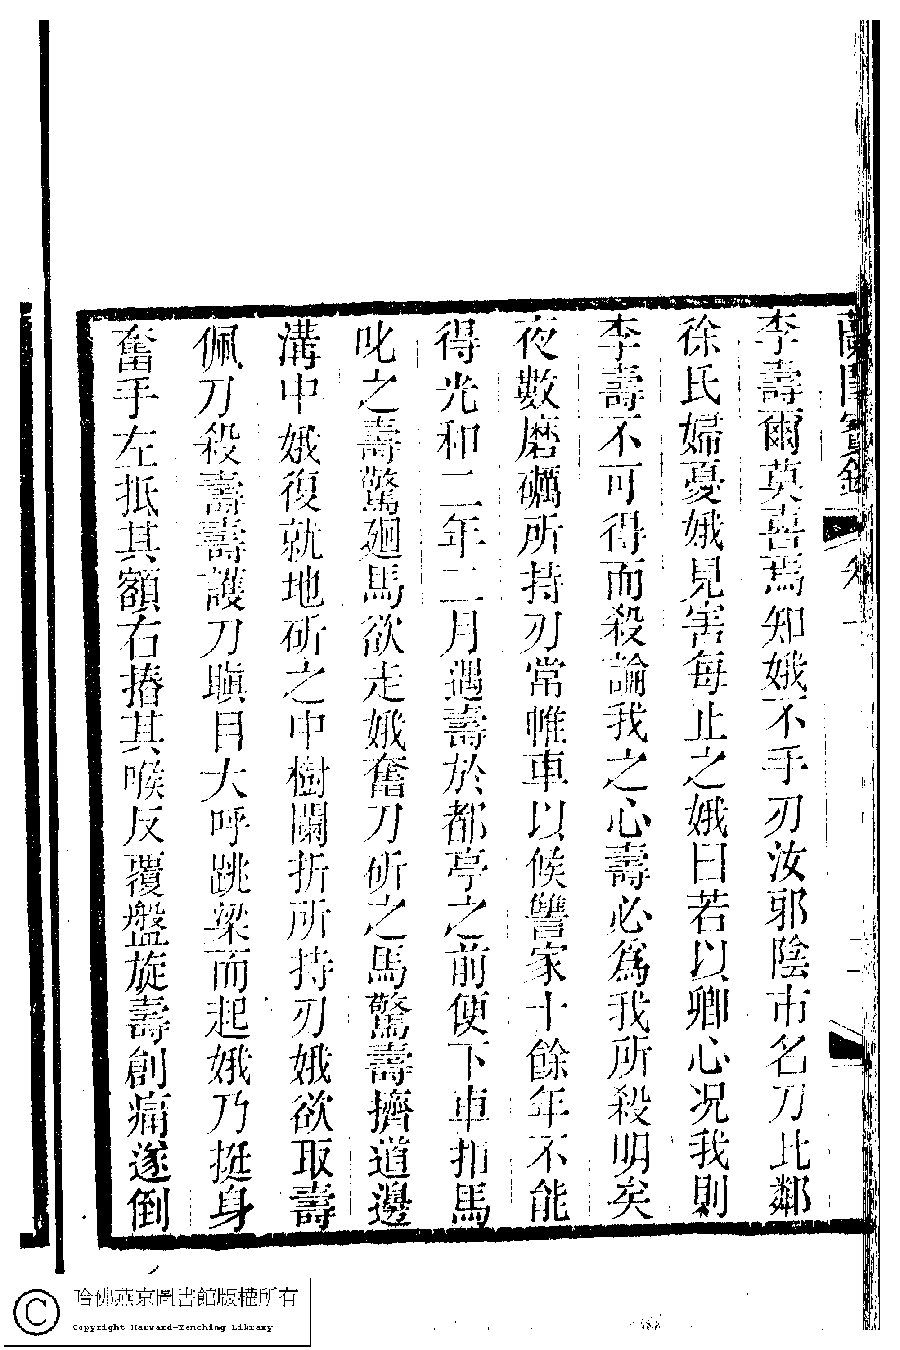 蘭閨寶錄 卷一
李壽爾莫喜焉知娥不手刃汝邪陰市名刀比鄰
徐氏婦憂娥見害每止之娥曰若以卿心况我則
李壽不可得而殺論我之心壽必爲我所殺明矣
夜數磨礪所持刃常帷車以候讐家十餘年不能
得光和二年二月遇壽於都亭之前便下車扣馬
叱之壽驚廻馬欲走娥奮刀斫之馬驚壽擠道邊
溝中娥復就地斫之中樹闌折所持刃娥欲取壽
佩刀殺壽壽護刀瞋目大呼跳梁而起娥乃挺身
奮手左抵其額右摏其喉反覆盤旋壽創痛遂倒
哈佛燕京圖書館版權所有
Copyright Harvard-Yenching Library